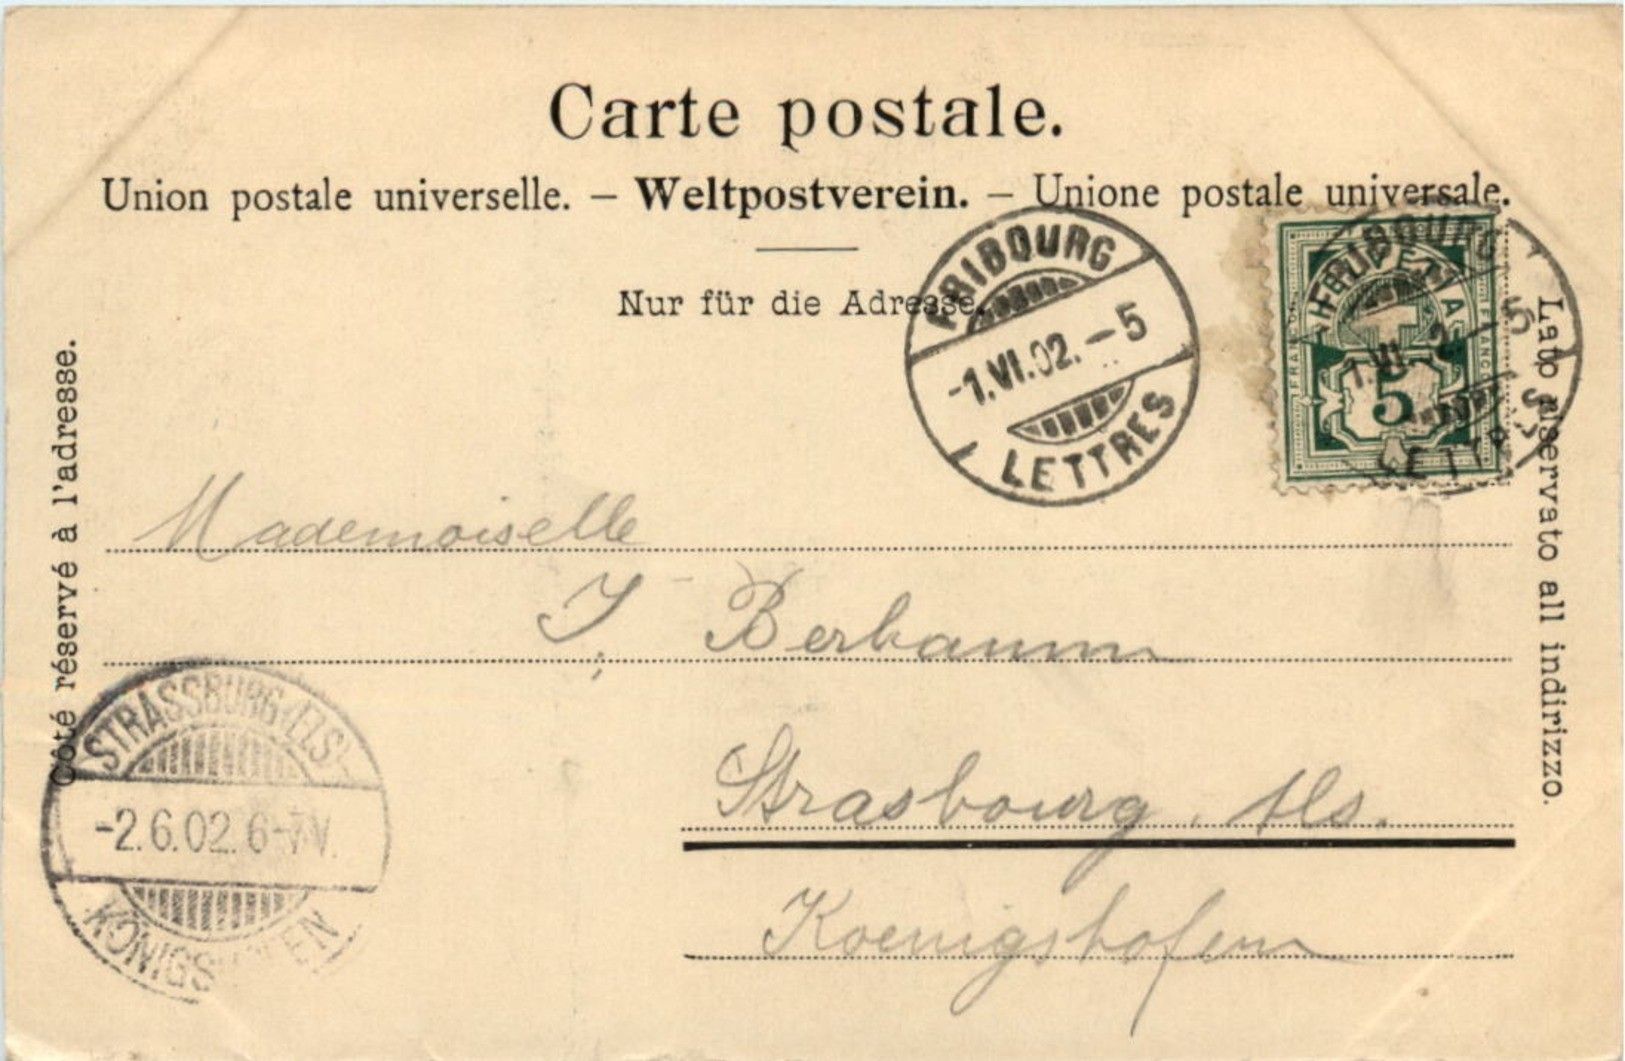 Carte postale.
Union postale universelle. – Weltpostverein. – Unione postale universale.
Nur für die Adresse.
Côté réservé à l'adresse.
Lato riservato all indirizzo.
FRIBOURG
-1.VI.02.-5
LETTRES
HELVETIA
FRANCO
5
FRIBOURG
1.VI. 2-5
LETTRES
Mademoiselle
J. Berbaum
Strasbourg. Als.
Koenigshofen
STRASSBURG (ELS)
-2.6.02.6-7V.
KÖNIGSHOFEN